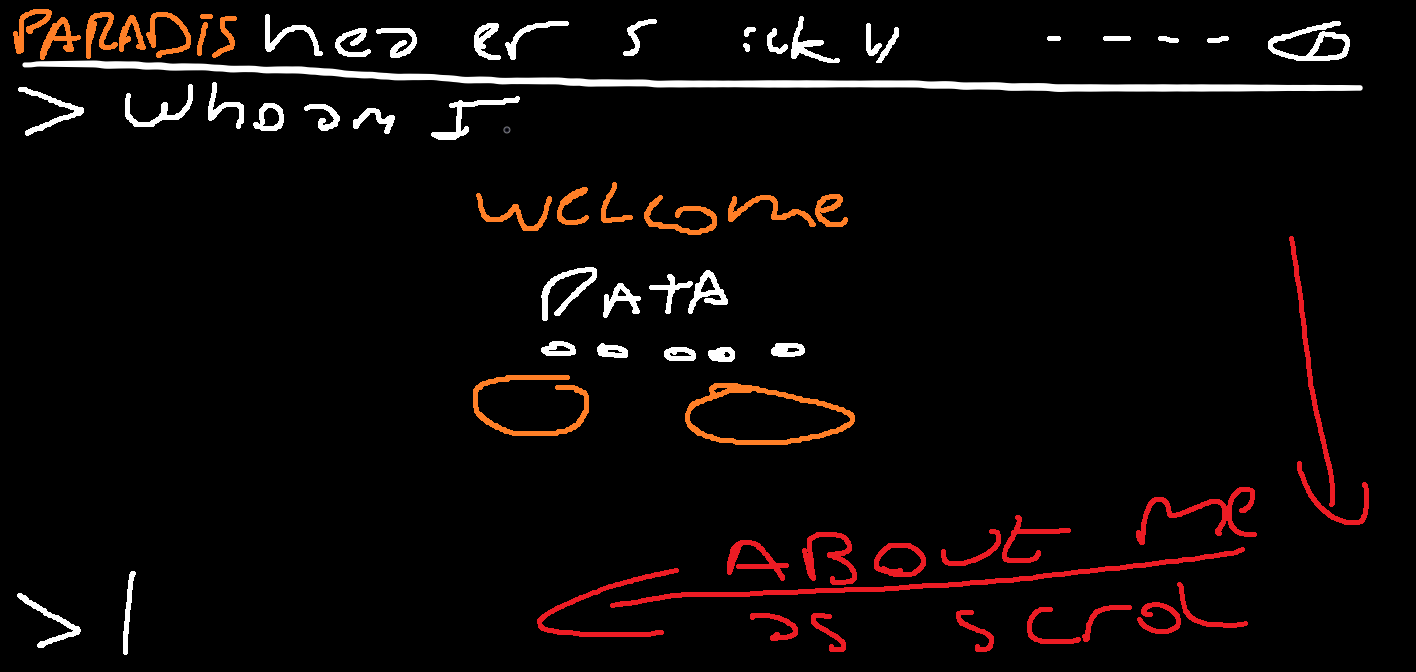 PARADiS heaer sicky ----
> Whoam I
WELCOME
DATA
ABOUT Me
as scrol
> |